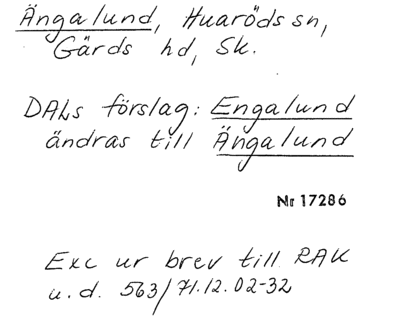 Ängalund, Huaröds sn,
Gärds hd, Sk.
DALs förslag: Engalund
ändras till Ängalund
Nr 17286
Exc ur brev till RAK
u.d. 563/71.12.02-32